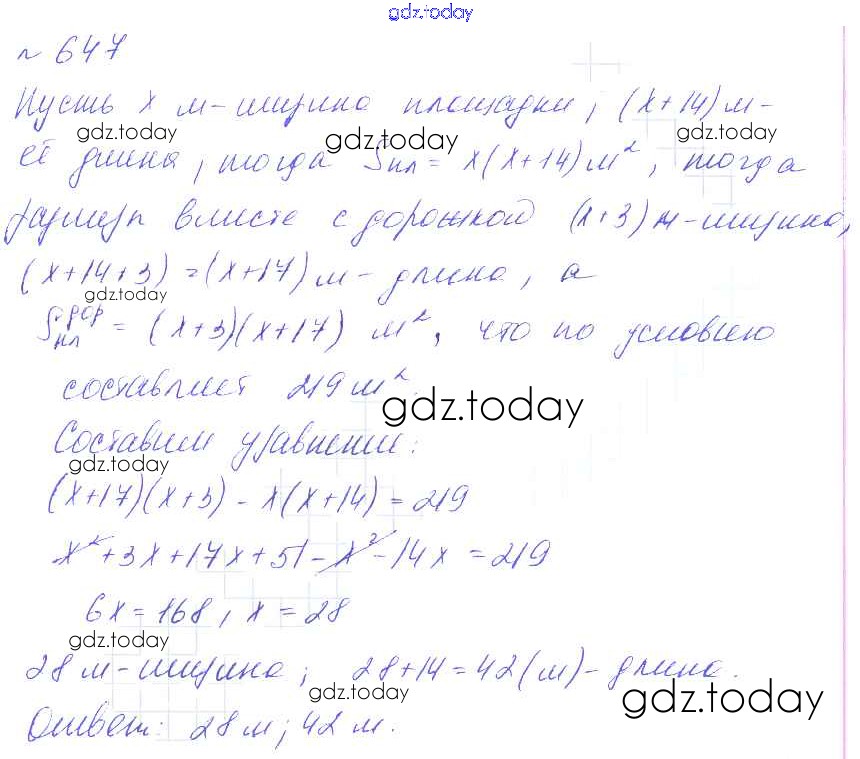 gdz.today
№ 647
Пусть x м-ширина площадки, (x+14) м-
gdz.today gdz.today gdz.today
её длина, тогда Sпл = x(x+14) м², тогда
размеры вместе с дорожкой (x+3) м-ширина,
(x+14+3) = (x+17) м - длина, а
gdz.today
Sпл дор = (x+3)(x+17) м², что по условию
составляет 219 м².
gdz.today
Составим уравнение:
gdz.today
(x+17)(x+3) - x(x+14) = 219
x² + 3x + 17x + 51 - x² - 14x = 219
6x = 168, x = 28
gdz.today
28 м - ширина; 28+14 = 42 (м) - длина.
gdz.today gdz.today
Ответ: 28 м; 42 м.